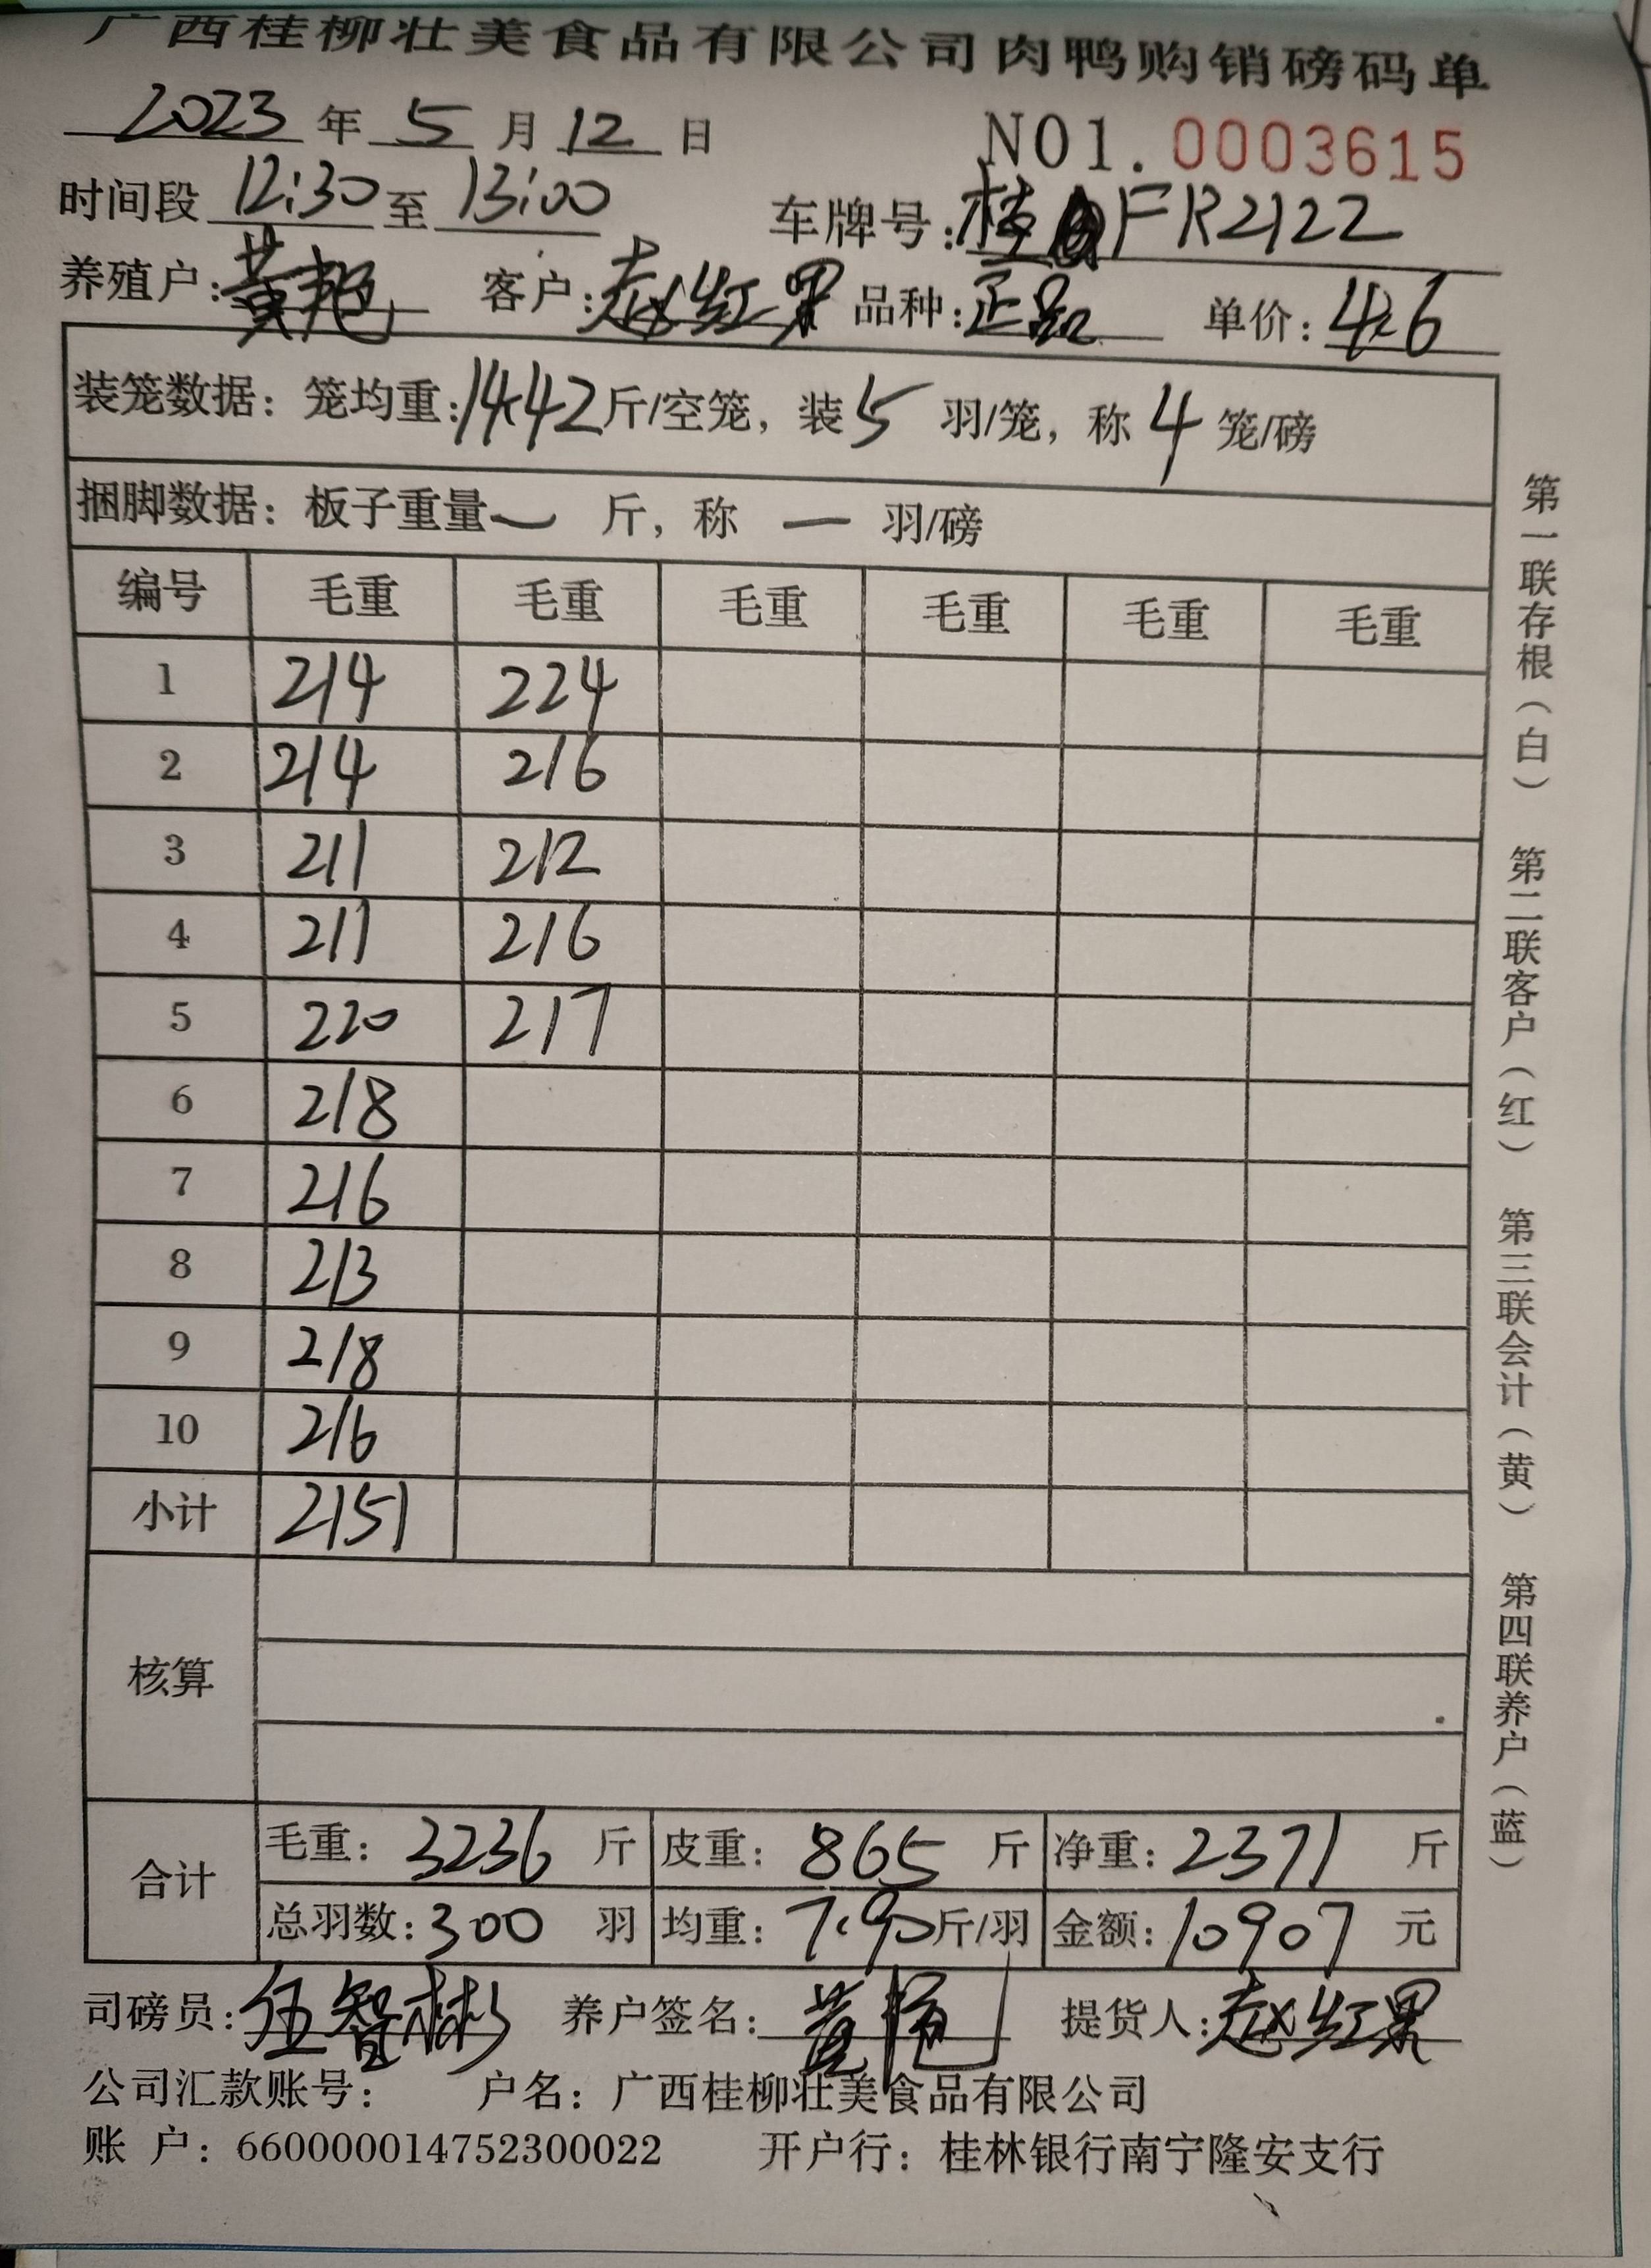 广西桂柳壮美食品有限公司肉鸭购销磅码单
2023 年 5 月 12 日 NO1.0003615
时间段 12:30 至 13:00 车牌号:桂FR2122
养殖户:黄艳 客户:赵红果 品种:正品 单价:4.6
装笼数据:笼均重:14.42斤/空笼,装5羽/笼,称4笼/磅
捆脚数据:板子重量一 斤,称 一 羽/磅
编号 毛重 毛重 毛重 毛重 毛重 毛重
1 214 224
2 214 216
3 211 212
4 211 216
5 220 217
6 218
7 216
8 213
9 218
10 216
小计 2151
核算
合计
毛重:3236 斤 皮重:865 斤 净重:2371 斤
总羽数:300 羽 均重:7.90斤/羽 金额:10907 元
司磅员:伍智彬 养户签名:黄艳 提货人:赵红果
公司汇款账号: 户名:广西桂柳壮美食品有限公司
账 户:660000014752300022 开户行:桂林银行南宁隆安支行
第一联存根(白) 第二联客户(红) 第三联会计(黄) 第四联养户(蓝)